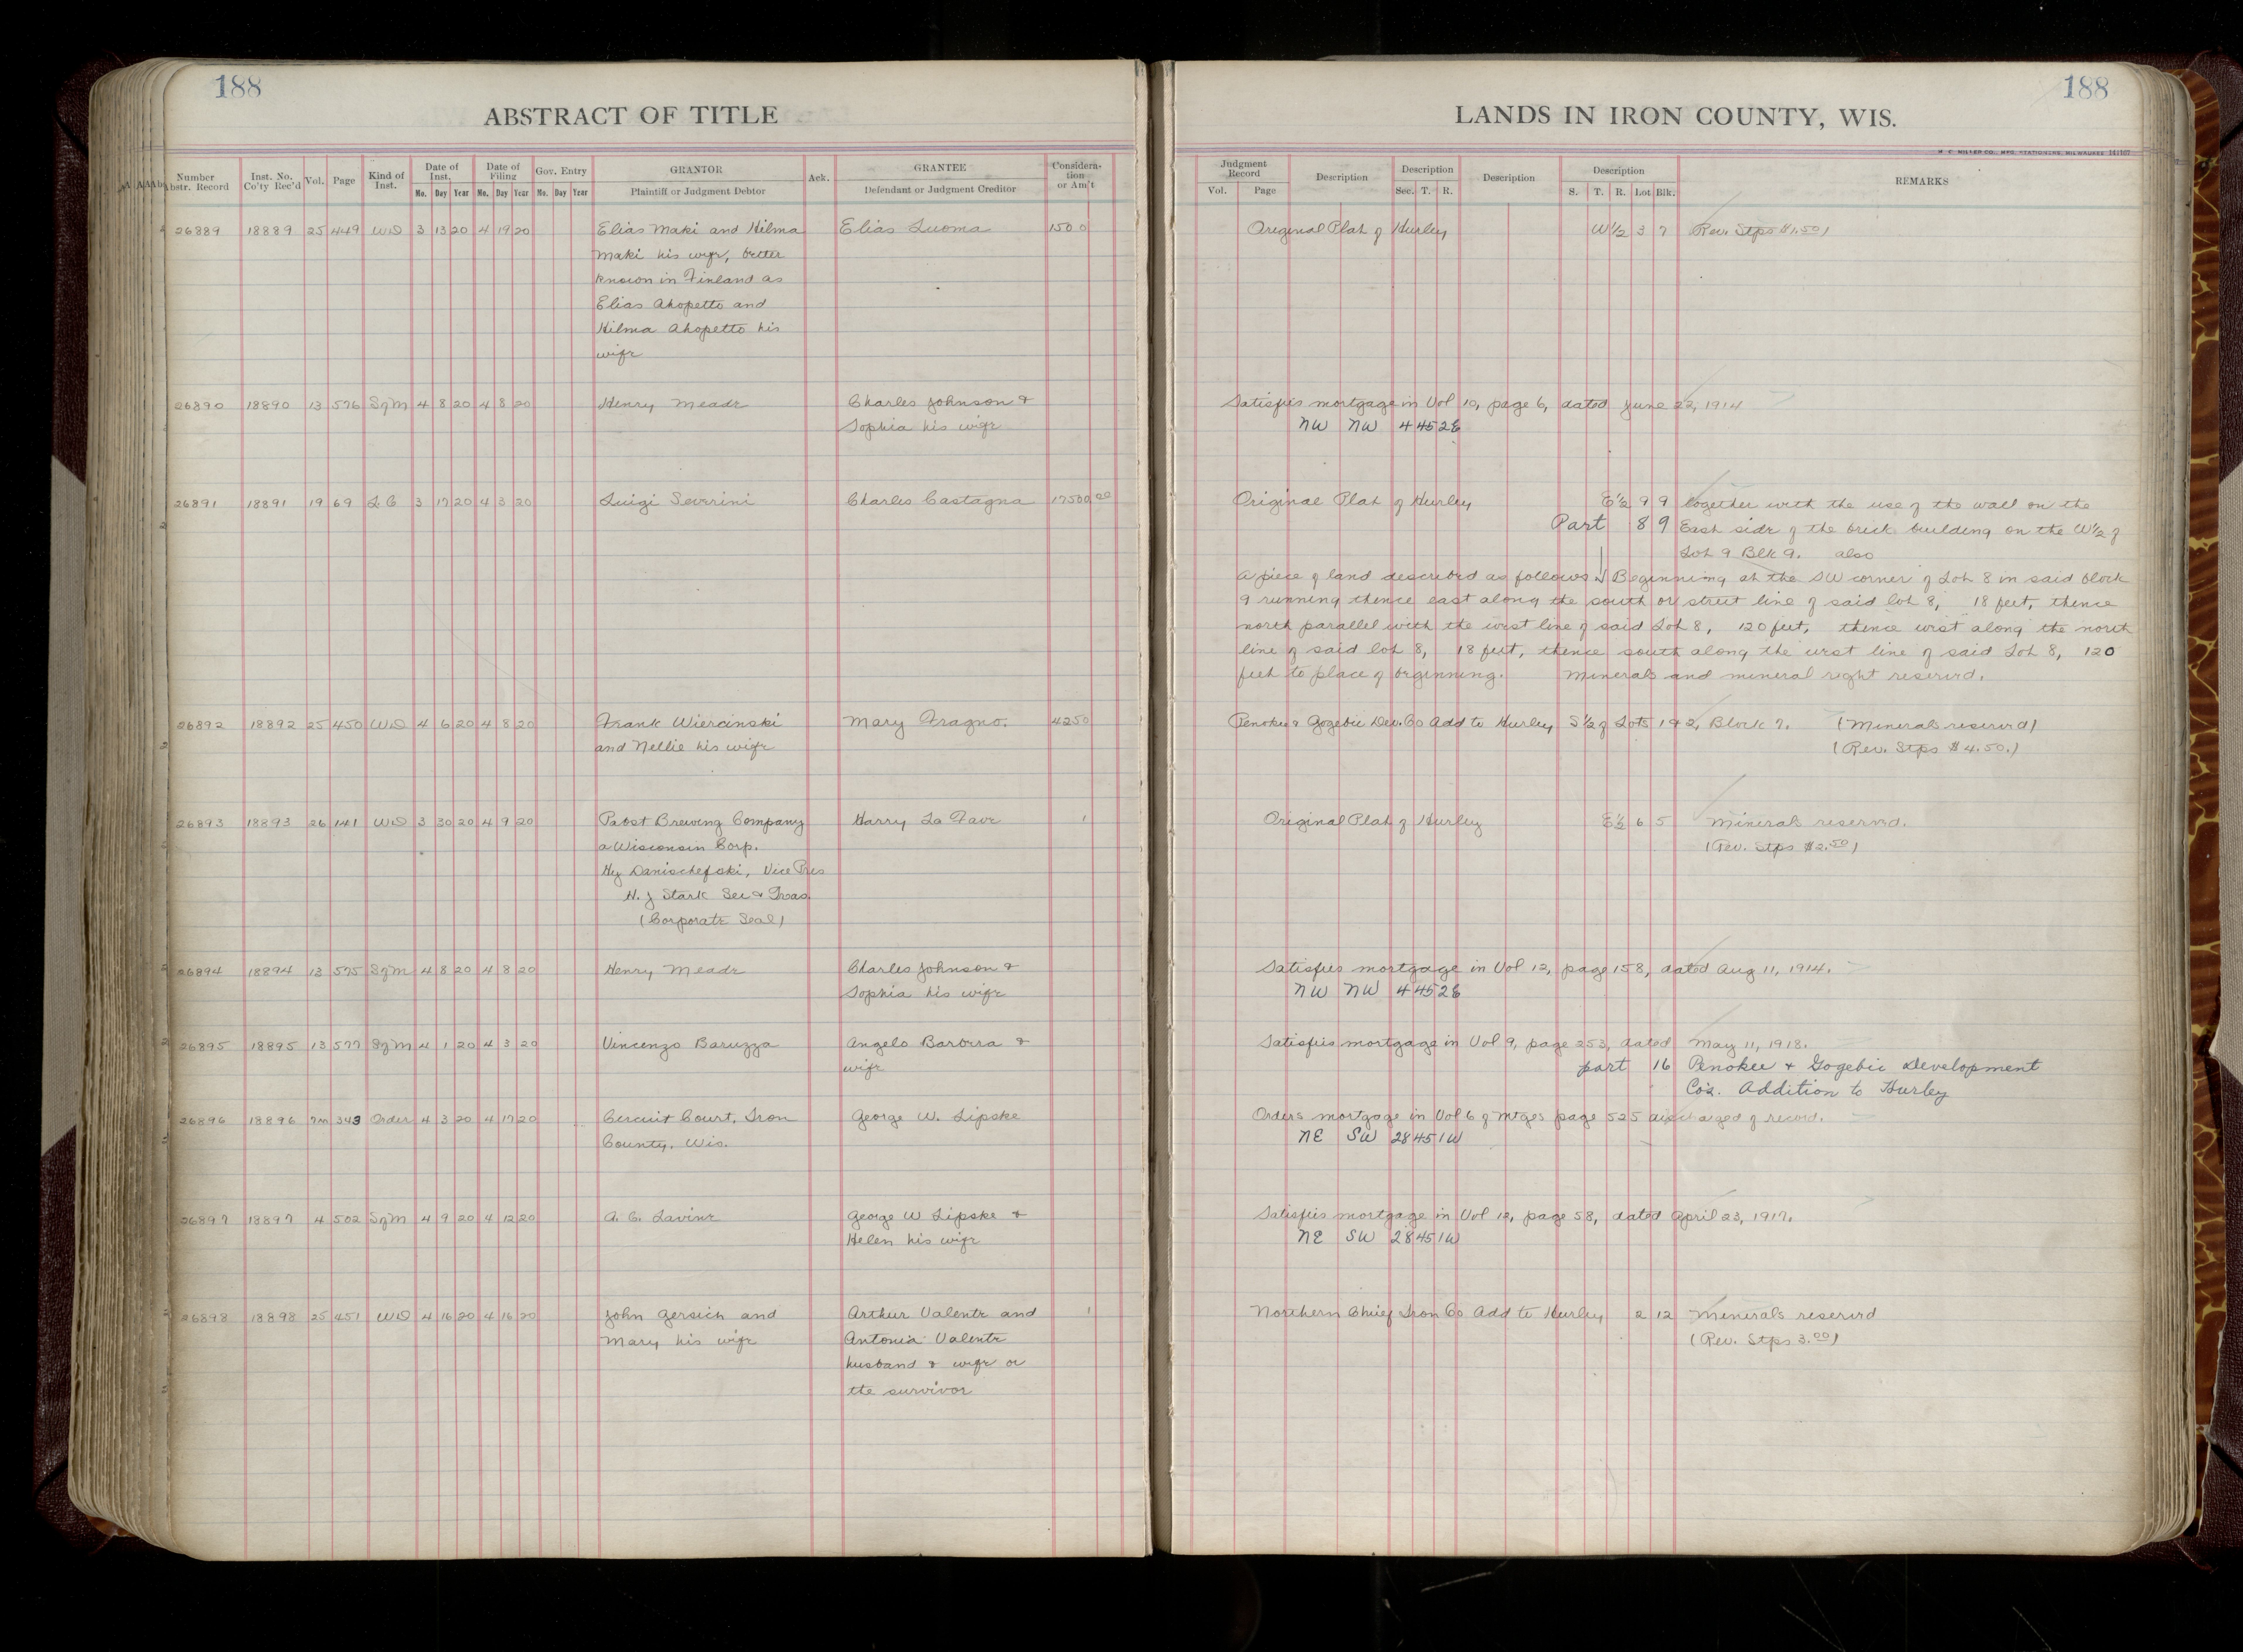 188
ABSTRACT OF TITLE
Number Abstr. Record Inst. No. Co'ty Rec'd Vol. Page Kind of Inst. Date of Inst. Mo. Day Year Date of Filing Mo. Day Year Gov. Entry Mo. Day Year GRANTOR Plaintiff or Judgment Debtor Ack. GRANTEE Defendant or Judgment Creditor Considera-tion or Am't
26889 18889 25 449 WD 3 13 20 4 19 20 Elias Maki and Hilma Elias Luoma 1500
Maki his wife, better
known in Finland as
Elias Ahopetto and
Hilma Ahopetto his
wife
26890 18890 13 576 SqM 4 8 20 4 8 20 Henry Meade Charles Johnson &
Sophia his wife
26891 18891 19 69 L C 3 17 20 4 3 20 Luigi Severini Charles Castagna 17500 00
26892 18892 25 450 WD 4 6 20 4 8 20 Frank Wiercinski Mary Fragno. 4250
and Nellie his wife
26893 18893 26 141 WD 3 30 20 4 9 20 Pabst Brewing Company Harry La Fave 1
a Wisconsin Corp.
Hy Danischefski, Vice Pres
H. J Stark Sec & Treas.
(Corporate Seal)
26894 18894 13 575 SqM 4 8 20 4 8 20 Henry Meade Charles Johnson &
Sophia his wife
26895 18895 13 577 SqM 4 1 20 4 3 20 Vincenzo Baruzza Angelo Barbera &
wife
26896 18896 7m 343 Order 4 3 20 4 17 20 Circuit Court, Iron George W. Lipske
County, Wis.
26897 18897 4 502 SqM 4 9 20 4 12 20 A. C. Lavine George W Lipske &
Helen his wife
26898 18898 25 451 WD 4 16 20 4 16 20 John Gersich and Arthur Valente and 1
Mary his wife Antonia Valente
husband & wife or
the survivor
188
LANDS IN IRON COUNTY, WIS.
H. C. MILLER CO., MFG. STATIONERS, MILWAUKEE
Judgment Record Vol. Page Description Description Sec. T. R. Description Description S. T. R. Lot Blk. REMARKS
Original Plat of Hurley W½ 3 7 (Rev. Stps $1.50)
Satisfies mortgage in Vol 10, page 6, dated June 22, 1914
NW NW 4 45 2E
Original Plat of Hurley E½ 9 9 together with the use of the wall on the
Part 8 9 East side of the brick building on the W½ of
Lot 9 Blk 9. also
A piece of land described as follows Beginning at the SW corner of Lot 8 in said block
9 running thence east along the south or street line of said lot 8, 18 feet, thence
north parallel with the west line of said Lot 8, 120 feet, thence west along the north
line of said lot 8, 18 feet, thence south along the west line of said Lot 8, 120
feet to place of beginning. Minerals and mineral right reserved.
Penokee & Gogebic Dev. Co Add to Hurley S½ of Lots 1 & 2, Block 7. (Minerals reserved)
(Rev. Stps $4.50.)
Original Plat of Hurley E½ 6 5 Minerals reserved.
(Rev. Stps $2.50)
Satisfies mortgage in Vol 12, page 158, dated Aug 11, 1914.
NW NW 4 45 2E
Satisfies mortgage in Vol 9, page 253, dated May 11, 1918.
part 16 Penokee & Gogebic Development
Co's. Addition to Hurley
Orders mortgage in Vol 6 of Mtges page 525 discharged of record.
NE SW 28 45 1W
Satisfies mortgage in Vol 12, page 58, dated April 23, 1917.
NE SW 28 45 1W
Northern Chief Iron Co Add to Hurley 2 12 Minerals reserved
(Rev. Stps 3.00)